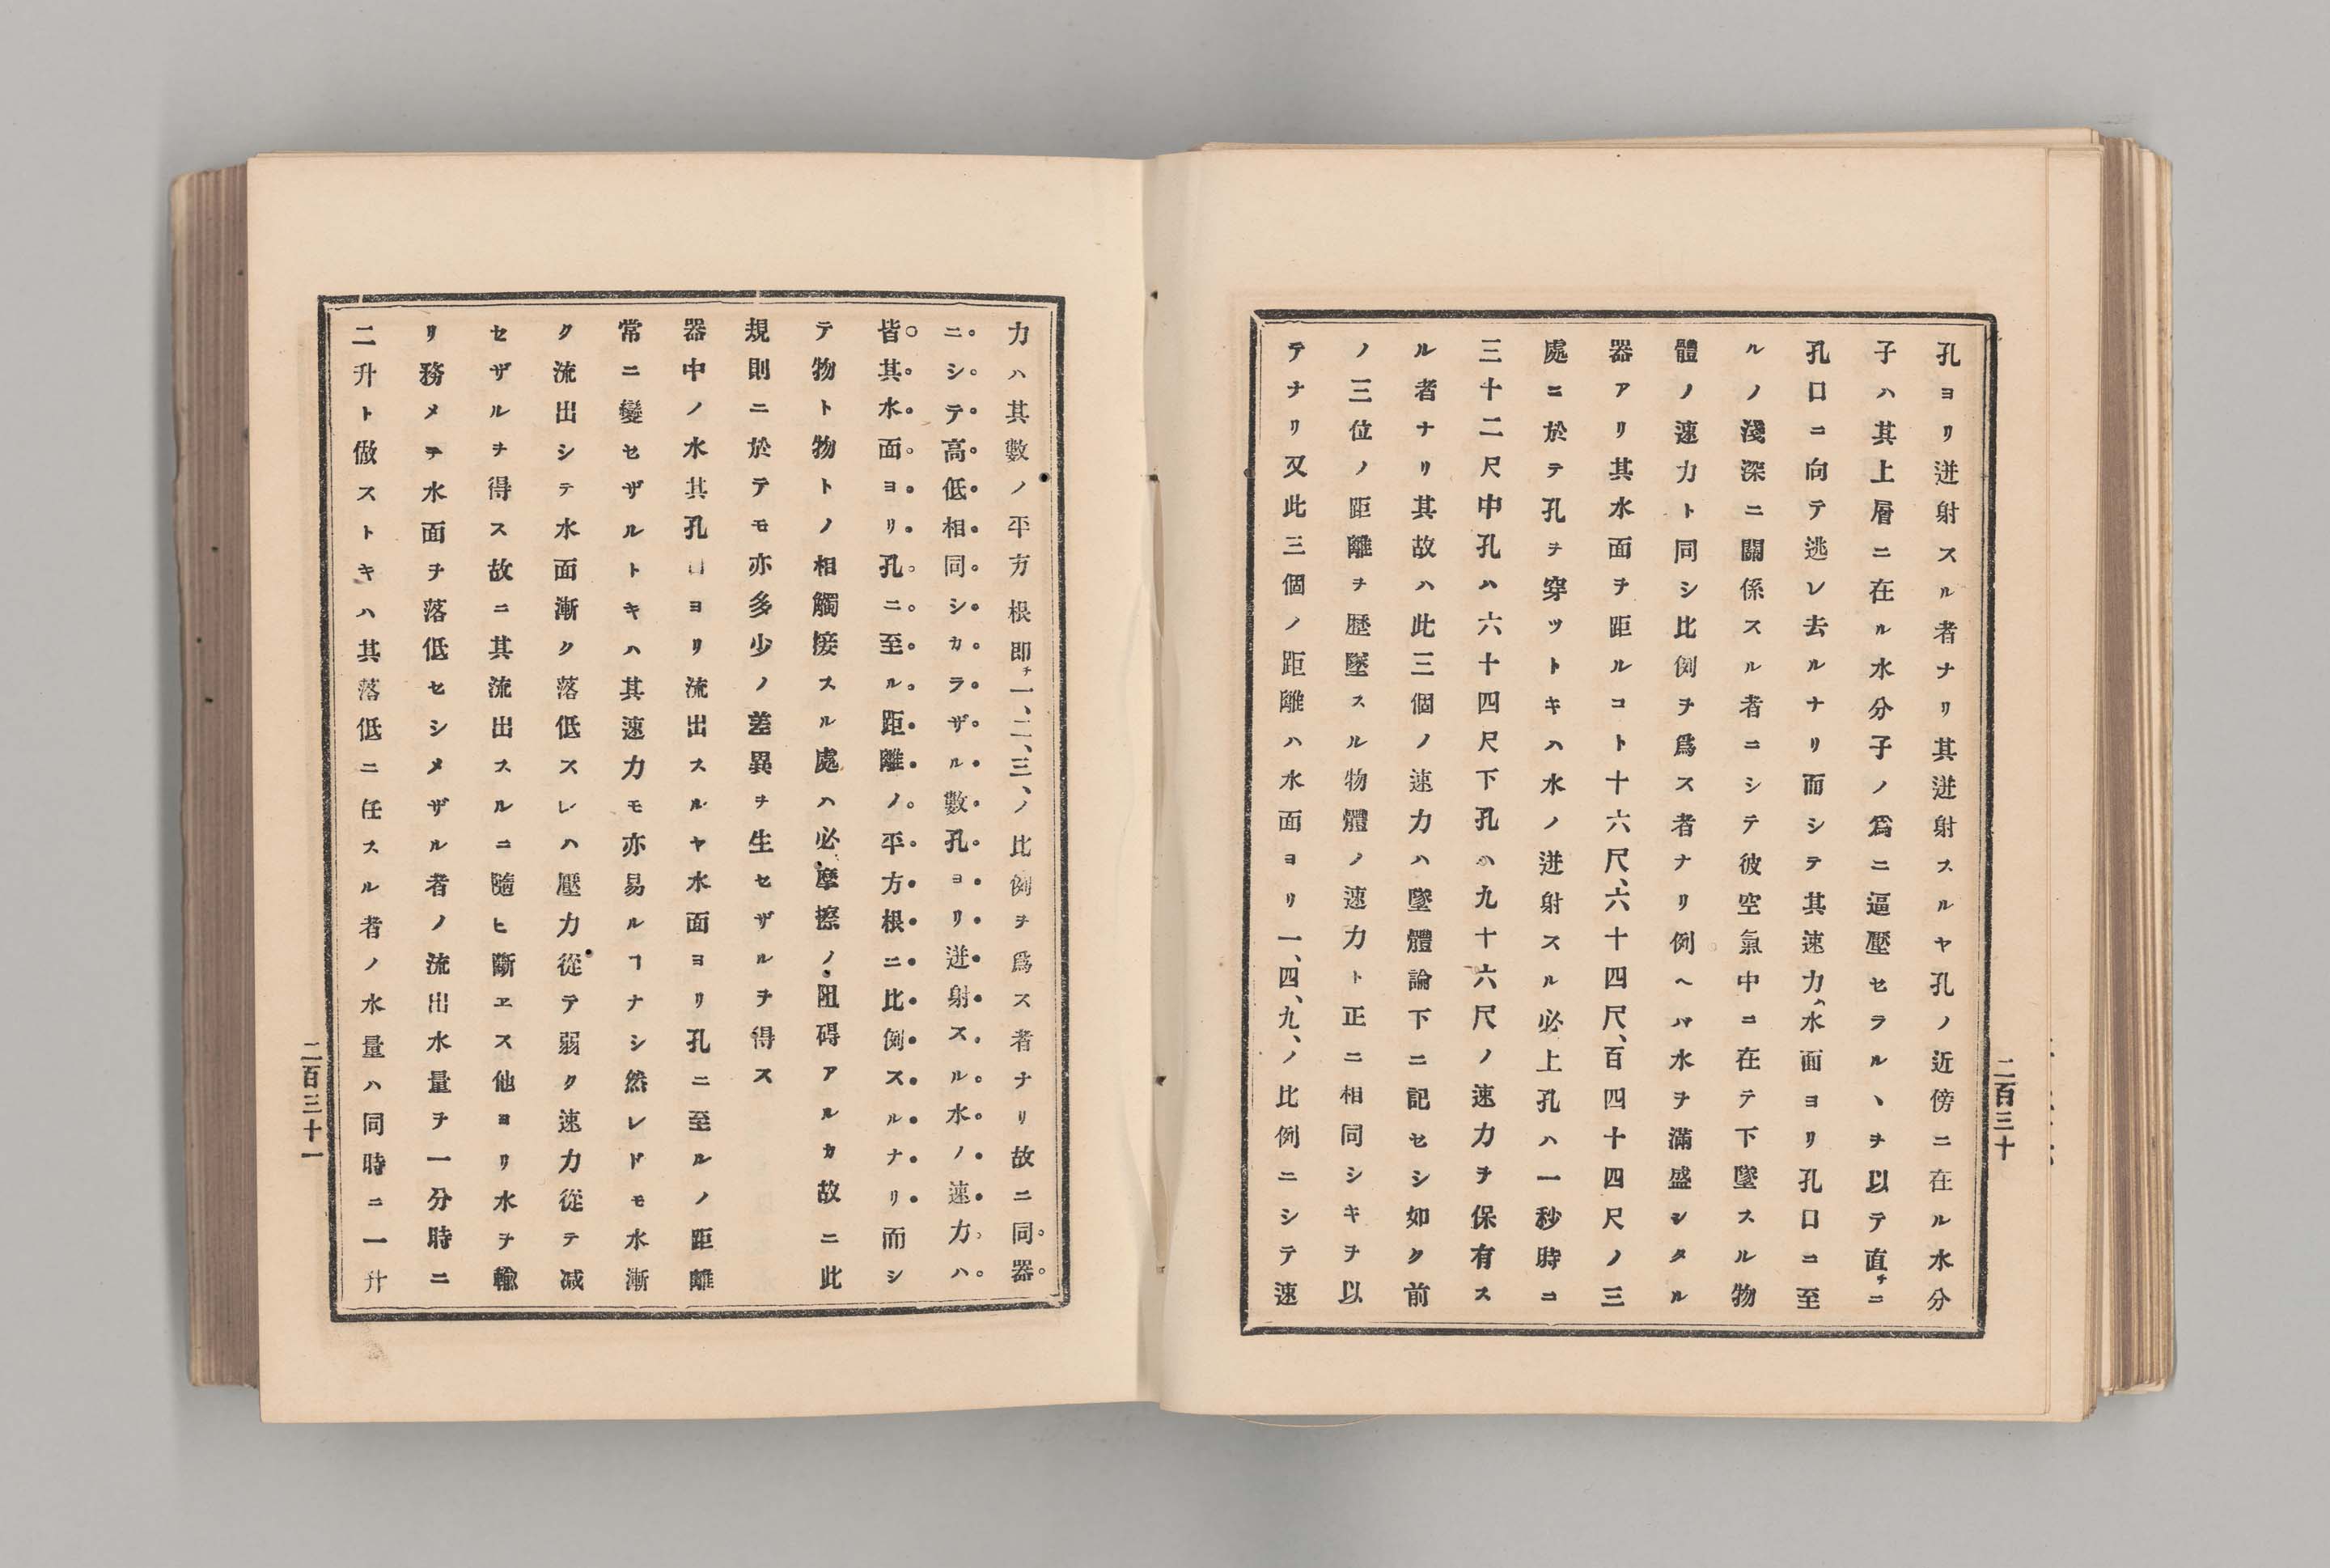 孔ヨリ迸射スル者ナリ其迸射スルヤ孔ノ近傍ニ在ル水分
子ハ其上層ニ在ル水分子ノ爲ニ逼壓セラルヽヲ以テ直チニ
孔口ニ向テ逃レ去ルナリ而シテ其速力ハ水面ヨリ孔口ニ至
ルノ淺深ニ關係スル者ニシテ彼空氣中ニ在テ下墜スル物
體ノ速力ト同シ比例ヲ爲ス者ナリ例ヘバ水ヲ滿盛シタル
器アリ其水面ヲ距ルコト十六尺、六十四尺、百四十四尺ノ三
處ニ於テ孔ヲ穿ツトキハ水ノ迸射スル必上孔ハ一秒時ニ
三十二尺中孔ハ六十四尺下孔ハ九十六尺ノ速力ヲ保有ス
ル者ナリ其故ハ此三個ノ速力ハ墜體論下ニ記セシ如ク前
ノ三位ノ距離ヲ歷墜スル物體ノ速力ト正ニ相同シキヲ以
テナリ又此三個ノ距離ハ水面ヨリ一、四、九、ノ比例ニシテ速
二百三十
力ハ其數ノ平方根即チ一、二、三、ノ比例ヲ爲ス者ナリ故ニ同器
ニシテ高低相同シカラザル數孔ヨリ迸射スル水ノ速力ハ
皆其水面ヨリ孔ニ至ル距離ノ平方根ニ比例スルナリ而シ
テ物ト物トノ相觸接スル處ハ必摩擦ノ阻碍アルカ故ニ此
規則ニ於テモ亦多少ノ差異ヲ生セザルヲ得ス
器中ノ水其孔口ヨリ流出スルヤ水面ヨリ孔ニ至ルノ距離
常ニ變セザルトキハ其速力モ亦易ルヿナシ然レドモ水漸
ク流出シテ水面漸ク落低スレハ壓力從テ弱ク速力從テ减
セザルヲ得ス故ニ其流出スルニ隨ヒ斷ヱス他ヨリ水ヲ輸
リ務メテ水面ヲ落低セシメザル者ノ流出水量ヲ一分時ニ
二升ト做ストキハ其落低ニ任スル者ノ水量ハ同時ニ一升
二百三十一